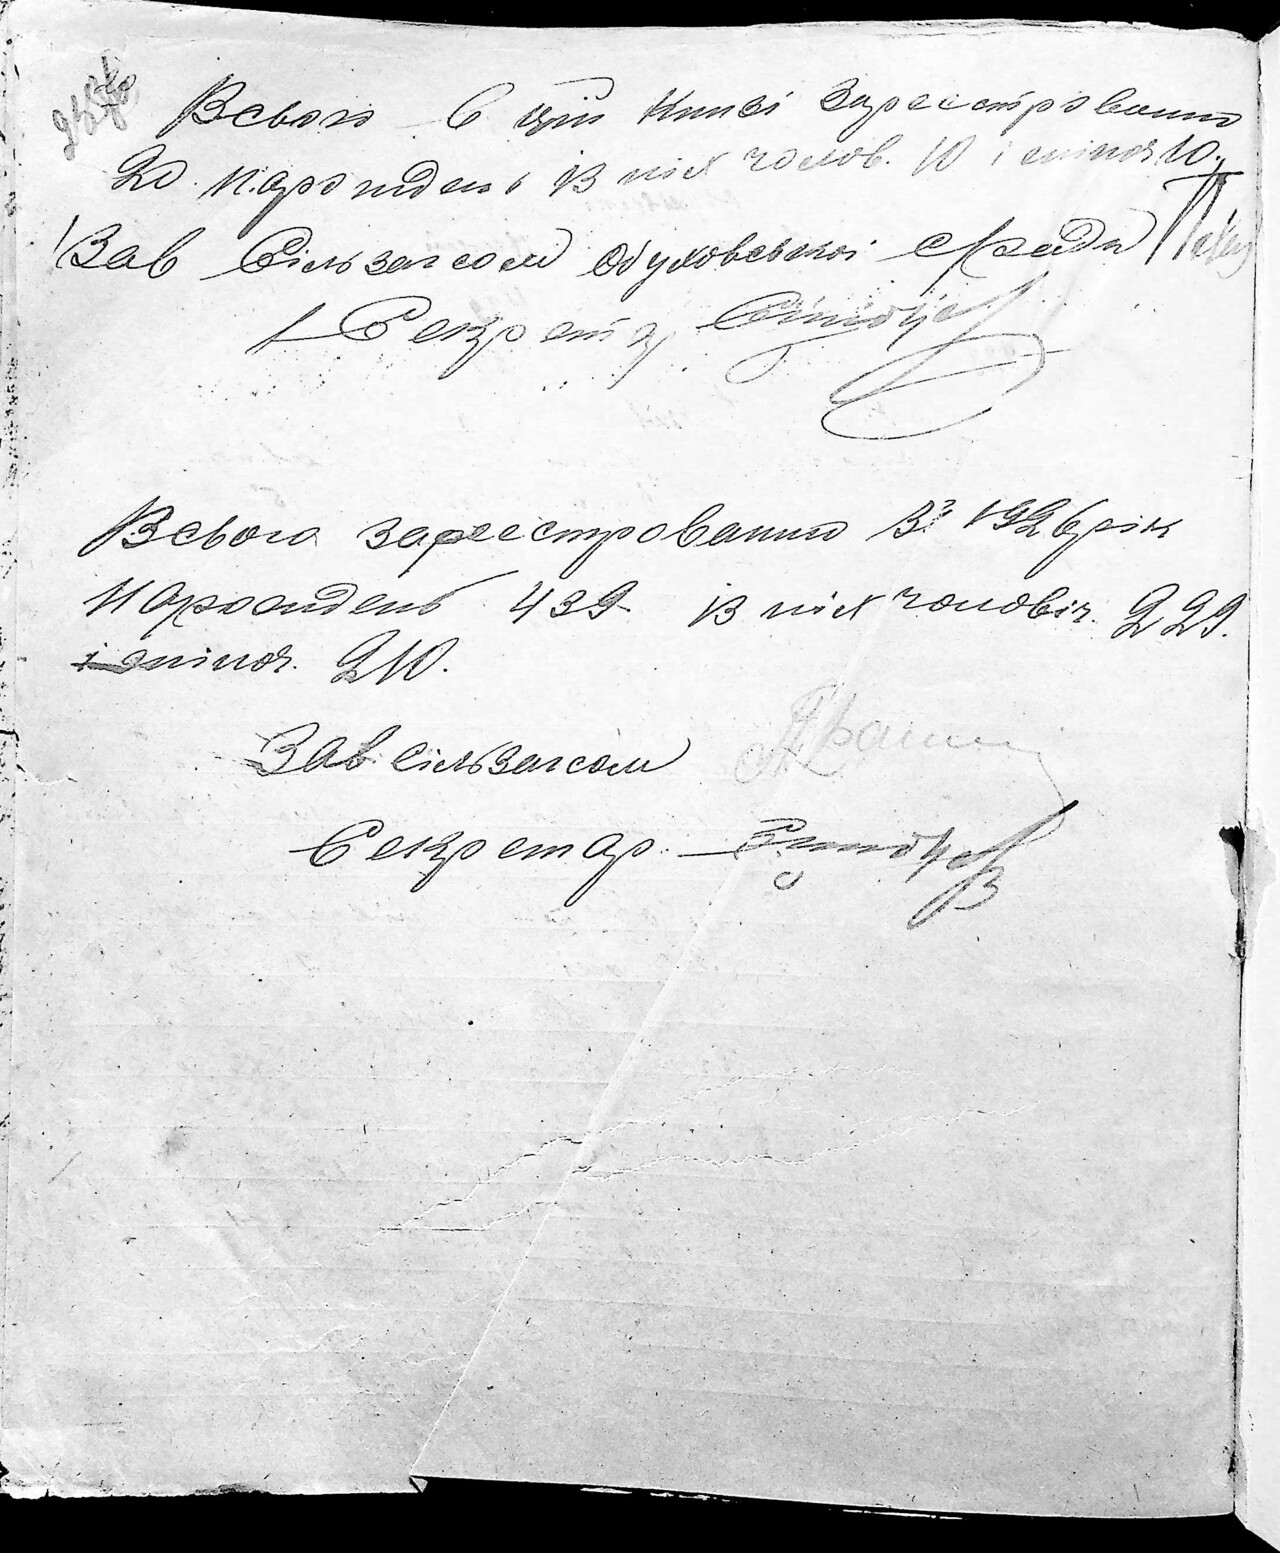 Всього в цій книзі зареєстровано
20 народжень із них чолов. 10 і жіноч 10.
Зав Сільзагсом Обуховської с/ради
Секретар
Всього зареєстровано за 1926 рік
народжень 439 із них чоловіч. 229.
і жіноч. 210.
Зав сільзагсом
Секретар.